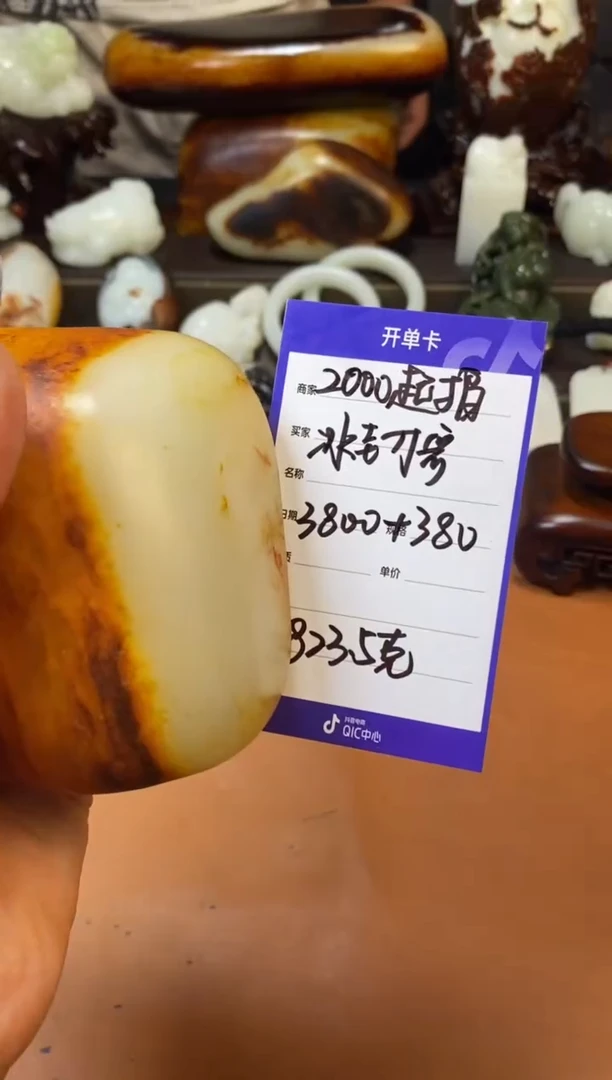 开单卡
商家 2000起拍
买家
名称
日期 3800+380
单价
823.5克
抖音电商
QIC中心